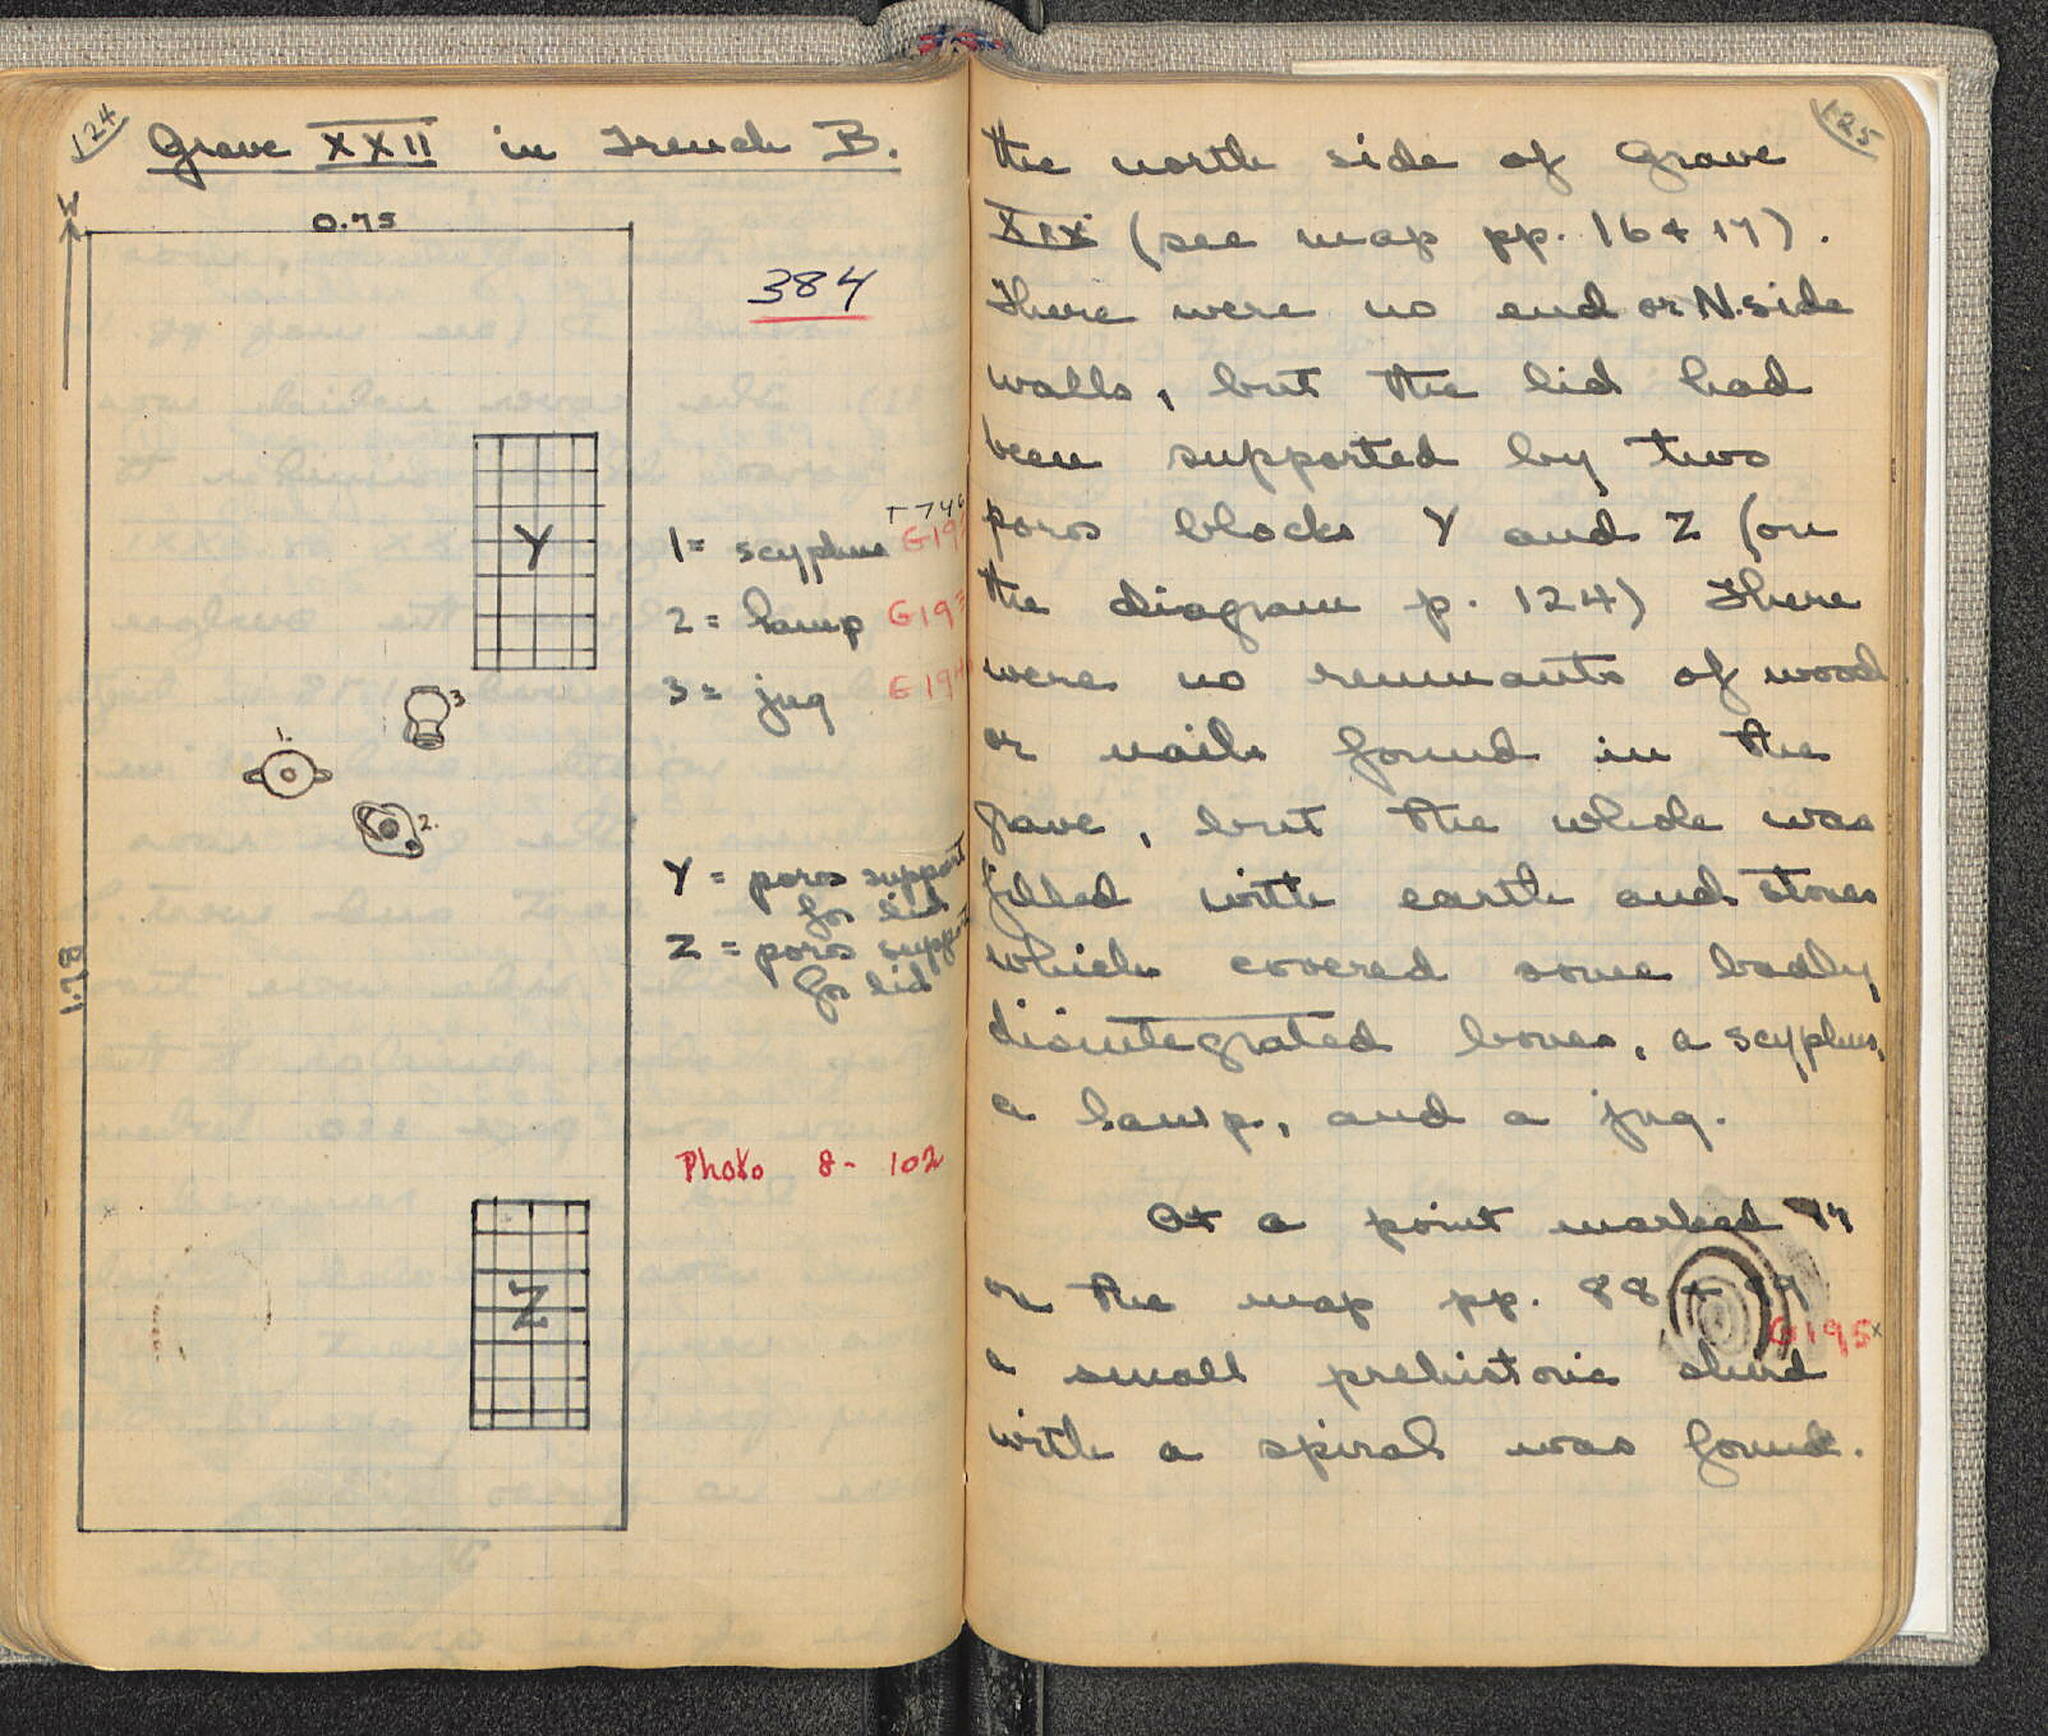 124
Grave XXII in Trench B.
W
0.75
384
Y
T 746
1 = scyphus G19
2 = lamp G19
3 = jug G19
3
1.
2.
Y = poros support
for lid
Z = poros support
for lid
1.78
Photo 8 - 102
Z
125
the north side of Grave
XIX (see map pp. 16 + 17).
There were no end or N. side
walls, but the lid had
been supported by two
poros blocks Y and Z (on
the diagram p. 124) There
were no remnants of wood
or nails found in the
grave, but the whole was
filled with earth and stones
which covered some badly
disintegrated bones, a scyphus,
a lamp, and a jug.
At a point marked
on the map pp. 88 + 89
G195x
a small prehistoric sherd
with a spiral was found.